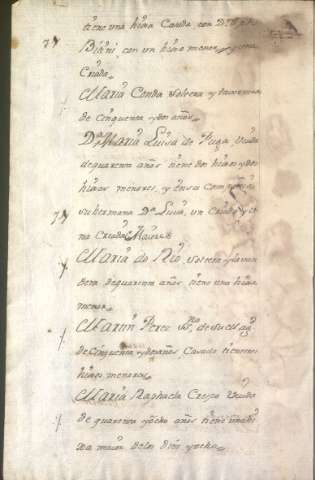 tiene una hixa Casada con Dn
Biani, con un hixo menor y una
Criada
Maria Conda soltera y
de cinquenta y dos años.
Da Maria Luisa de Puga Viuda
de quarenta años tiene dos hixos y dos
hixas menores, y en su compañia
su hermana Da Luisa, un Criado y u
na Criada
Maria do Rio, soltera
dera de quarenta años, tiene una hixa
menor
Martin Perez
de cinquenta y dos años, Casado tiene tres
hixos menores
Maria Raphaela Crespo Viuda
de quarenta y ocho años tiene una hi
xa maior de los diez y ocho